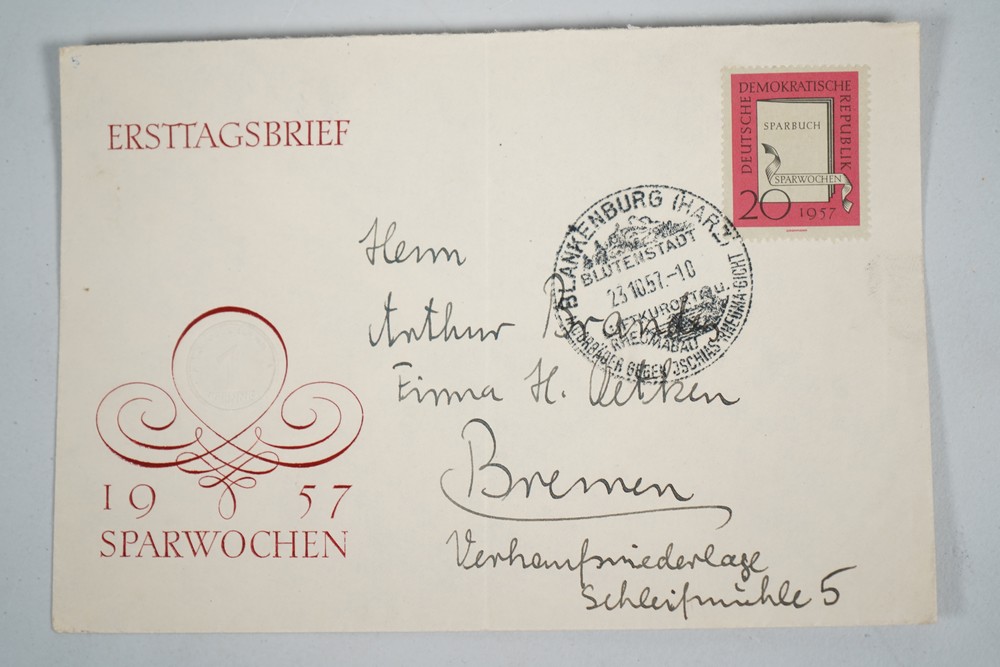 ERSTTAGSBRIEF
DEUTSCHE
DEMOKRATISCHE
REPUBLIK
SPARBUCH
SPARWOCHEN
20 1957
BLANKENBURG (HARZ)
BLÜTENSTADT
23.10.57.-18
LUFTKURORT U.
RHEUMABAD
GEGEN ISCHIAS-RHEUMA-GICHT
Herrn
Arthur Brandt
Firma H. Oetken
Bremen
Verkaufsniederlage
Schleifmühle 5
19 57
SPARWOCHEN